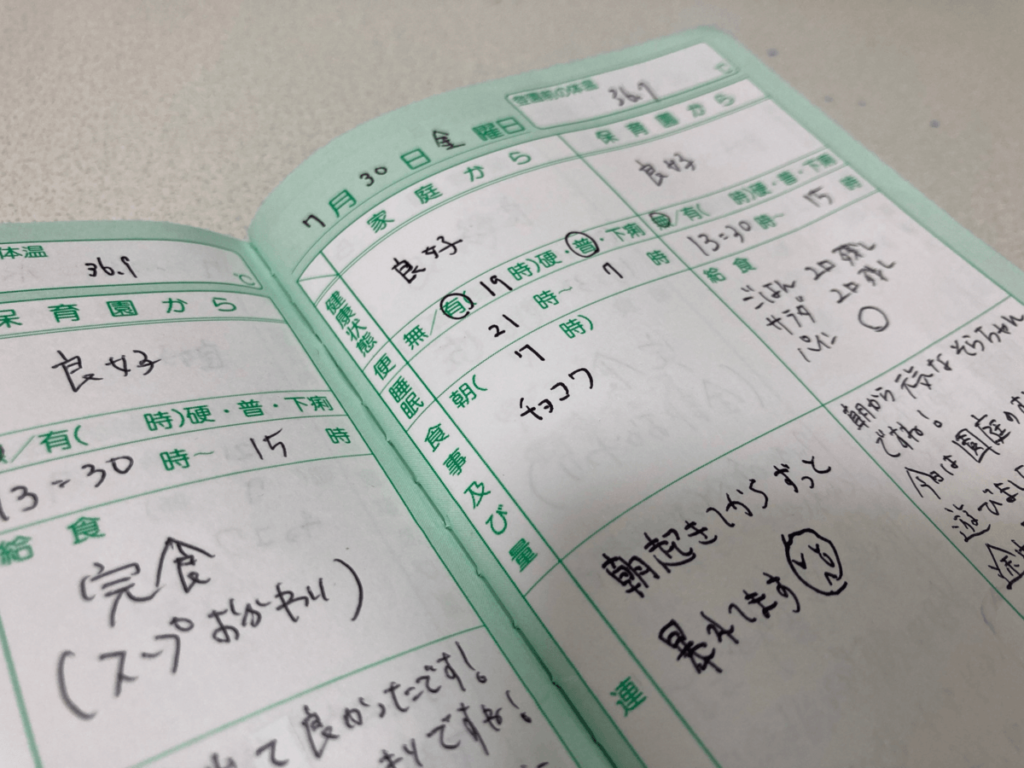 体温 36.9 ℃
保育園から
良好
/有( 時)硬・普・下痢
13:30 時〜 15 時
給食
完食
(スープおかわり)
良かったです!
ですね!
7月30日金曜日
36.7 ℃
家庭から
保育園から
健康状態
良好
良好
便
無/有(19時)硬・普・下痢
無/有( 時)硬・普・下痢
睡眠
21 時〜 7 時
13:30 時〜 15 時
食事及び量
朝( 7 時)
チョコワ
給食
ごはん 2口残し
サラダ 2口残し
パイン ○
連
朝起きてからずっと
暴れてます
朝から元気なそらちゃん
ですね!
今日は園庭の
遊び